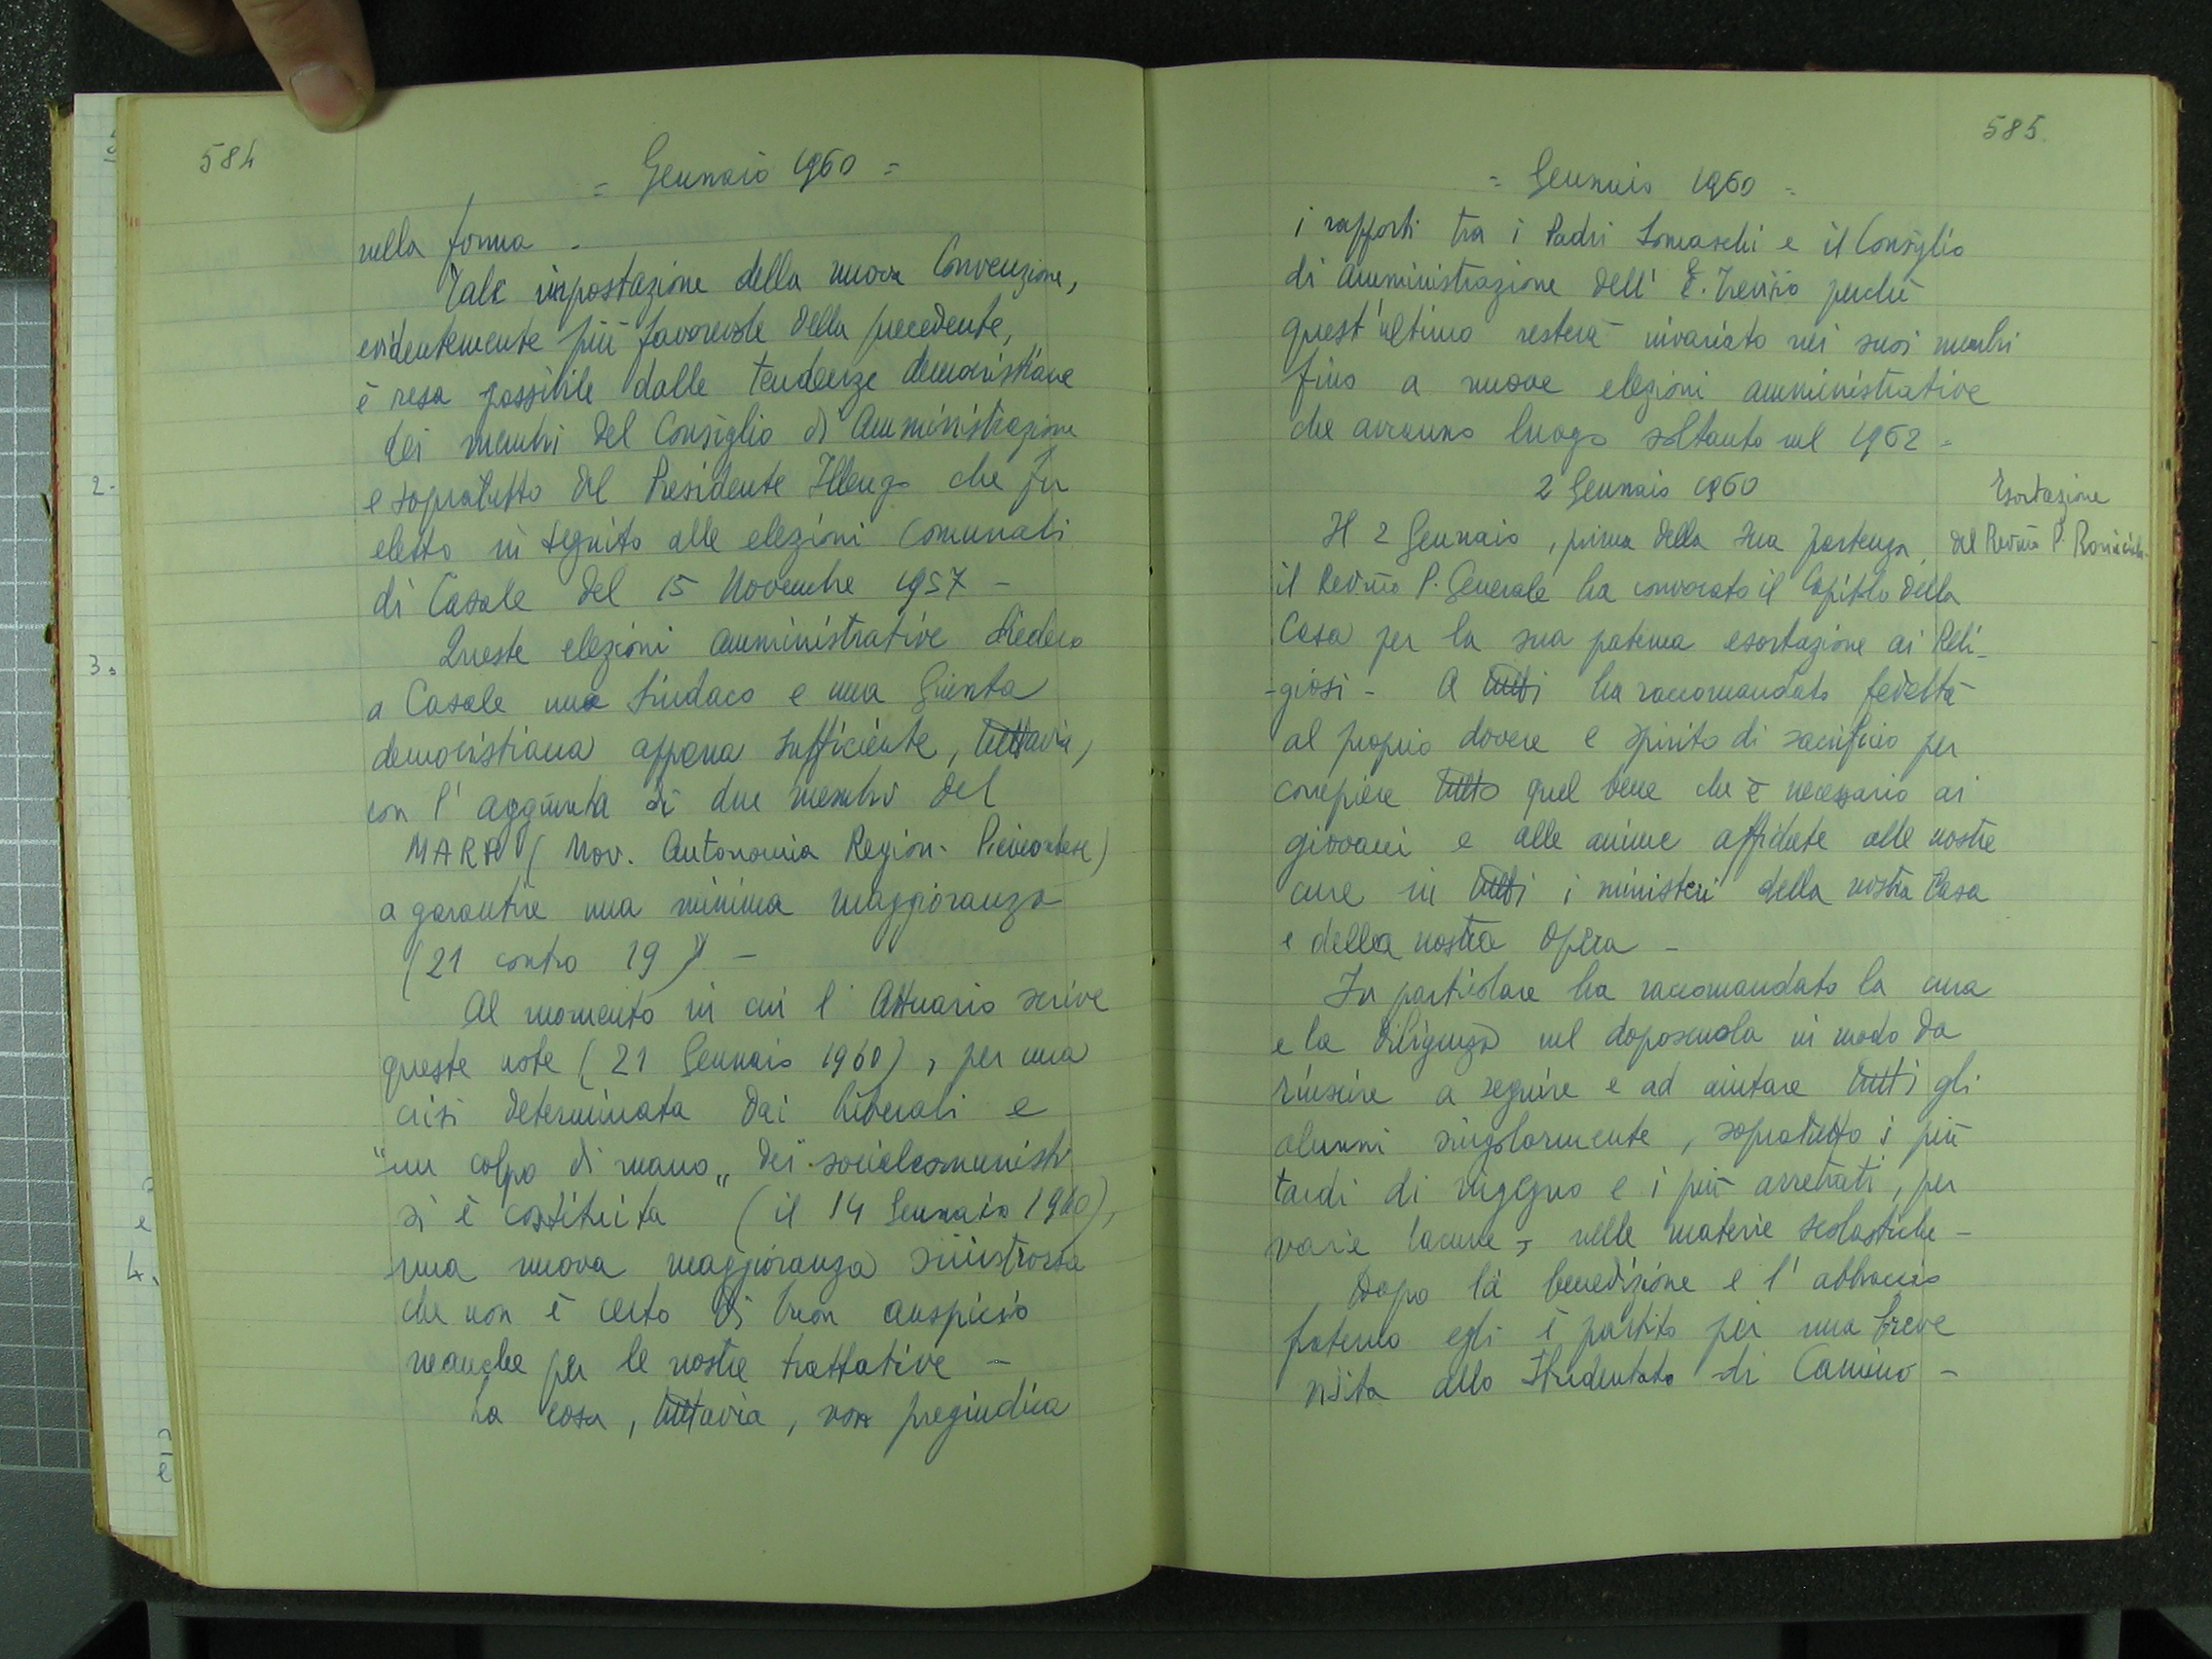 584
= Gennaio 1960 =
nella forma -
Tale impostazione della nuova Convenzione,
evidentemente più favorevole della precedente,
è resa possibile dalle tendenze democristiane
dei membri del Consiglio di Amministrazione
e sopratutto del Presidente Illengo che fu
eletto in seguito alle elezioni comunali
di Casale del 15 Novembre 1957 -
Queste elezioni amministrative diedero
a Casale una Sindaco e una Giunta
democristiana appena sufficiente, tuttavia,
con l'aggiunta di due membri del
MARP (Mov. Autonomia Region. Piemontese)
a garantire una minima maggioranza
(21 contro 19) -
Al momento in cui l'Attuario scrive
queste note (21 Gennaio 1960), per una
crisi determinata dai liberali e
"un colpo di mano" dei socialcomunisti
si è costituita (il 14 Gennaio 1960),
una nuova maggioranza sinistrorsa
che non è certo di buon auspicio
neanche per le nostre trattative -
La cosa, tuttavia, non pregiudica
585.
= Gennaio 1960 =
i rapporti tra i Padri Somaschi e il Consiglio
di Amministrazione dell' . Trevisio perchè
quest'ultimo resterà invariato nei suoi membri
fino a nuove elezioni amministrative
che avranno luogo soltanto nel 1962 =
2 Gennaio 1960
Esortazione
del Rev.mo P.
Il 2 Gennaio, prima della sua partenza,
il Rev.mo P. Generale ha convocato il Capitolo della
Casa per la sua paterna esortazione ai Reli-
-giosi - A tutti ha raccomandato fedeltà
al proprio dovere e spirito di sacrificio per
compiere tutto quel bene che è necessario ai
giovani e alle anime affidate alle nostre
cure in tutti i ministeri della nostra Casa
e della nostra Opera -
In particolare ha raccomandato la cura
e la diligenza nel doposcuola in modo da
riuscire a seguire e ad aiutare tutti gli
alunni singolarmente, sopratutto i più
tardi di ingegno e i più arretrati, per
varie lacune, nelle materie scolastiche -
Dopo la benedizione e l'abbraccio
fraterno egli è partito per una breve
visita allo Studentato di Camino -